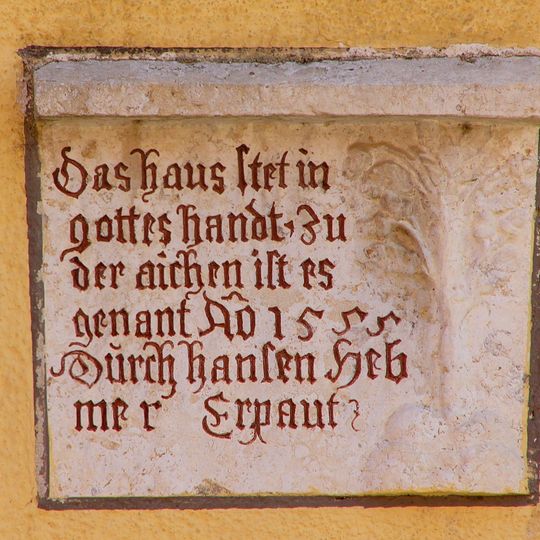 Das haus stet in
gottes handt, zu
der aichen ist es
genant Ao 1555
Durch hansen Heb
mer Erpaut